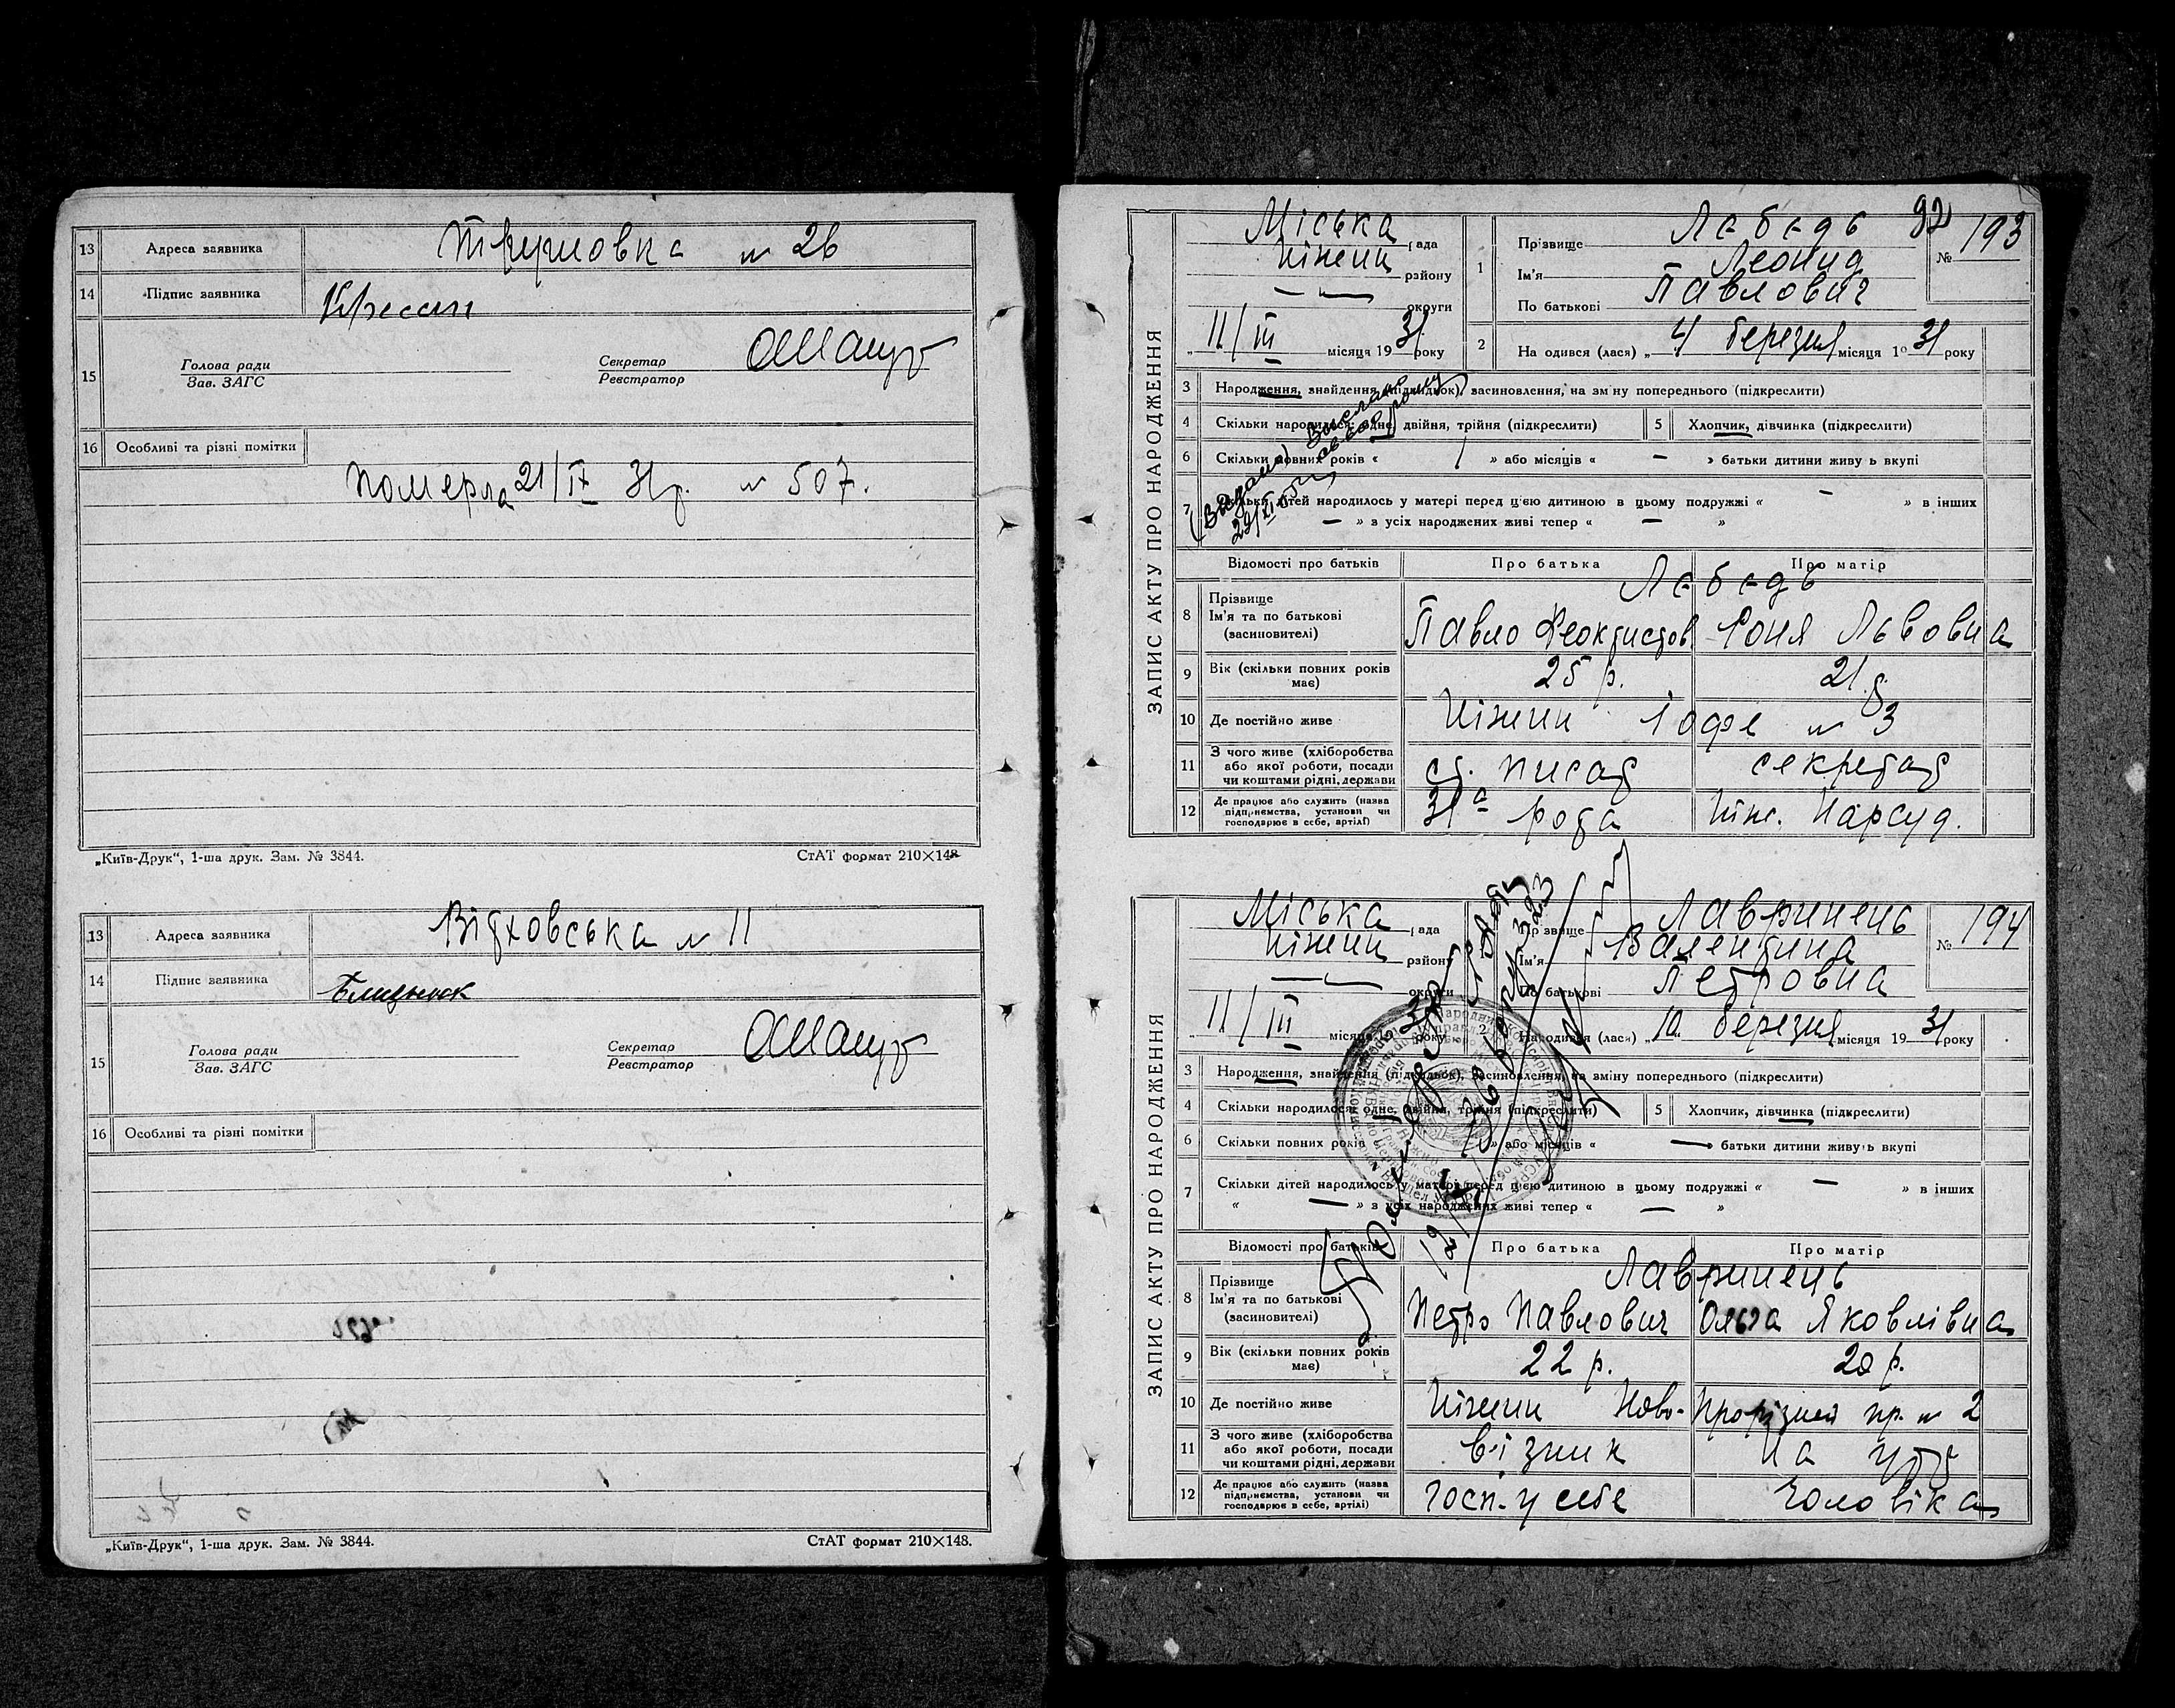 13 Адреса заявника № 26
14 Підпис заявника
15 Голова ради
Зав. ЗАГС
Секретар
Реєстратор
16 Особливі та різні помітки
померла 21/IX 31р. № 507.
„Київ-Друк“, 1-ша друк. Зам. № 3844. СтАТ формат 210×148
13 Адреса заявника № 11
14 Підпис заявника
15 Голова ради
Зав. ЗАГС
Секретар
Реєстратор
16 Особливі та різні помітки
„Київ-Друк“, 1-ша друк. Зам. № 3844. СтАТ формат 210×148.
92
ЗАПИС АКТУ ПРО НАРОДЖЕННЯ
Міська рада
Ніжин району
— округи
„ 11/III місяця 1931 року
1 Прізвище Лебедь
Ім'я Леонид
По батькові Павлович
№ 193
2 На одився (лася) „ 4 березня місяця 1931 року
3 Народження, знайдення (підкидьок), засиновлення, на зміну попереднього (підкреслити)
4 Скільки народилося: одне, двійня, трійня (підкреслити) 5 Хлопчик, дівчинка (підкреслити)
6 Скільки повних років « / » або місяців « — » батьки дитини живуть вкупі
7 Скільки дітей народилось у матері перед цією дитиною в цьому подружжі « — » в інших
— » з усіх народжених живі тепер « — »
Відомості про батьків Про батька Про матір
8 Прізвище Лебедь
Ім'я та по батькові
(засиновителі) Павло Феоктистов Соня Львовна
9 Вік (скільки повних років має) 25 р. 21 р.
10 Де постійно живе Ніжин № 3
11 З чого живе (хліборобства
або якої роботи, посади
чи коштами рідні, держави ст. писар секретар
12 Де працює або служить (назва
підприємства, установи чи
господарює в себе, артілі) 31а рота Ніж. Нарсуд.
ЗАПИС АКТУ ПРО НАРОДЖЕННЯ
Міська рада
Ніжин району
— округи
11/III місяця 1931 року
Прізвище Лавринець
Ім'я Валентина
По батькові Петровна
№ 194
2 Народився (лася) „ 10 березня місяця 1931 року
3 Народження, знайдення (підкидьок), засиновлення, на зміну попереднього (підкреслити)
4 Скільки народилося: одне, двійня, трійня (підкреслити) 5 Хлопчик, дівчинка (підкреслити)
6 Скільки повних років » або місяців « — » батьки дитини живуть вкупі
7 Скільки дітей народилось у матері перед цією дитиною в цьому подружжі « — » в інших
« — » з усіх народжених живі тепер « — »
Відомості про батьків Про батька Про матір
8 Прізвище Лавринець
Ім'я та по батькові
(засиновителі) Петро Павлович Ольга Яковлівна
9 Вік (скільки повних років має) 22 р. 20 р.
10 Де постійно живе Ніжин Ново- пр. № 2
11 З чого живе (хліборобства
або якої роботи, посади
чи коштами рідні, держави візник на утр
12 Де працює або служить (назва
підприємства, установи чи
господарює в себе, артілі) госп. у себе чоловіка